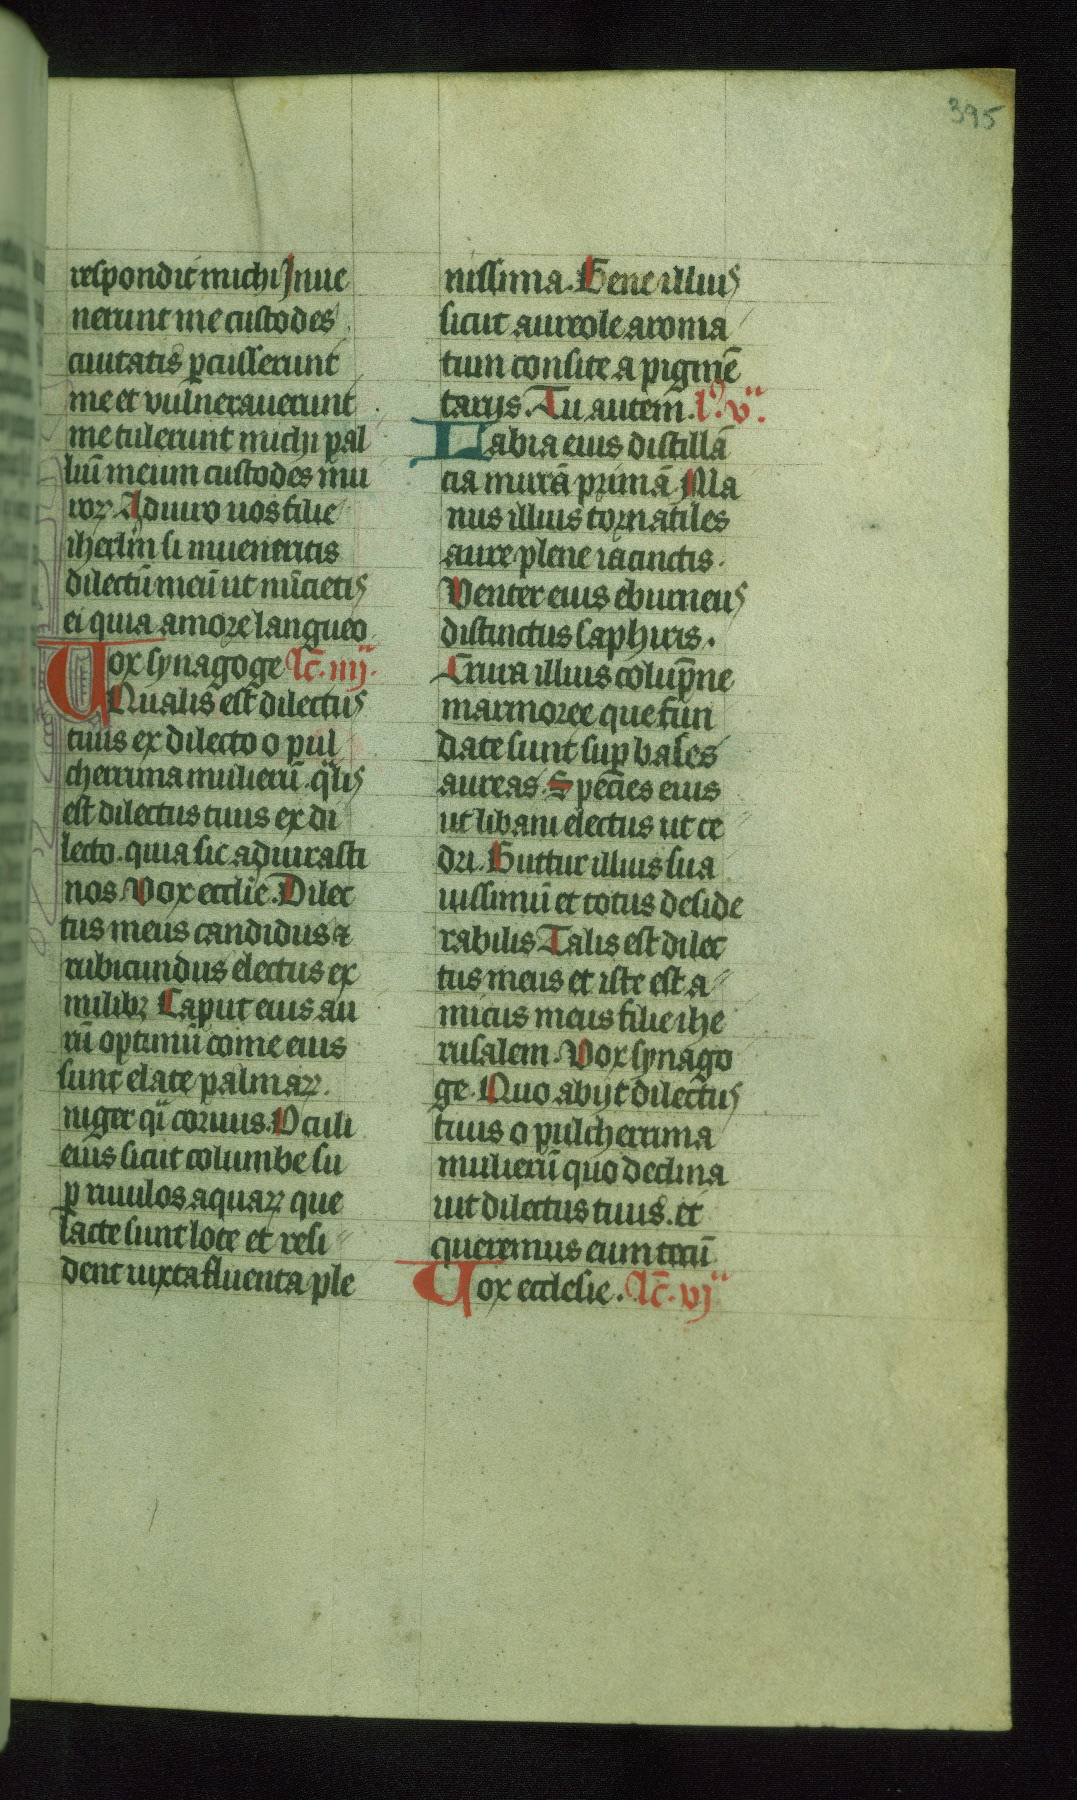 395
respondit michi Inue
nerunt me custodes
ciuitatis ꝑcusserunt
me et vulnerauerunt
me tulerunt michi pal
liū meum custodes mu
roꝝ. Adiuro uos filie
iherl̄m si inueneritis
dilectū meū ut nūcietis
ei quia amore langueo
Vox synagoge lc̄. iiij.
Qualis est dilectus
tuus ex dilecto o pul
cherrima mulierū. q̄lis
est dilectus tuus ex di
lecto. quia sic adiurasti
nos Vox eccl̄ie. Dilec
tus meus candidus ⁊
rubicundus electus ex
milibꝫ Caput eius au
rū optimū come eius
sunt elate palmaꝝ.
niger qi coruus. Oculi
eius sicut columbe su
ꝑ riuulos aquaꝝ que
lacte sunt lote et resi
dent iuxta fluenta ple
nissima. Gene illius
sicut aureole aroma
tum consite a pigmē
tarijs. Tu autem. lo. v.
Labia eius distillā
cia mirrā primā Ma
nus illius tornatiles
auree plene iacinctis.
Venter eius eburneus
distinctus saphiris.
Crura illius colūpne
marmoree que fun
date sunt suꝑ bases
aureas. Species eius
ut libani electus ut ce
dri. Guttur illius sua
uissimū et totus deside
rabilis Talis est dilec
tus meus et iste est a
micus meus filie ihe
rusalem. Vox synago
ge. Quo abijt dilectus
tuus o pulcherrima
mulierū quo declina
uit dilectus tuus. et
queremus eum tecū
Vox ecclesie. lc̄. vj